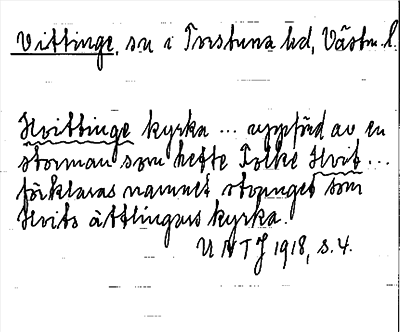 Vittinge, sn i Torstuna hd, Västm. l.
Hvittinge kyrka ... uppförd av en
storman som hette Tolke Hvit ...
förklaras namnet stranget som
Hvits ättlingars kyrka.
UNTJ 1918, s. 4.